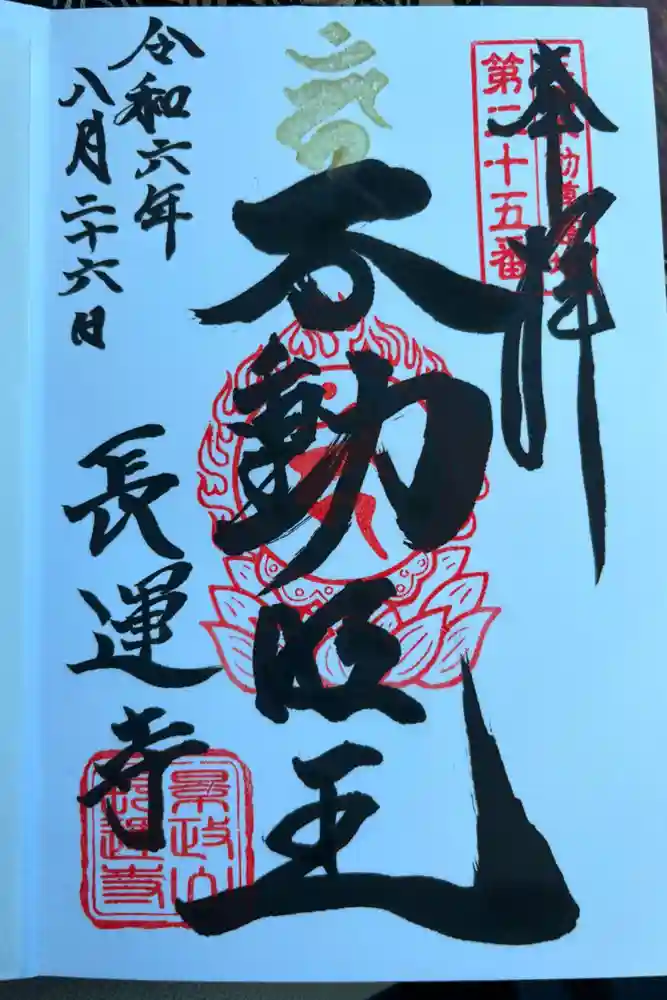 奉拝
第 十五番
不動明王
令和六年
八月二十六日
長運寺
景政山
長運寺